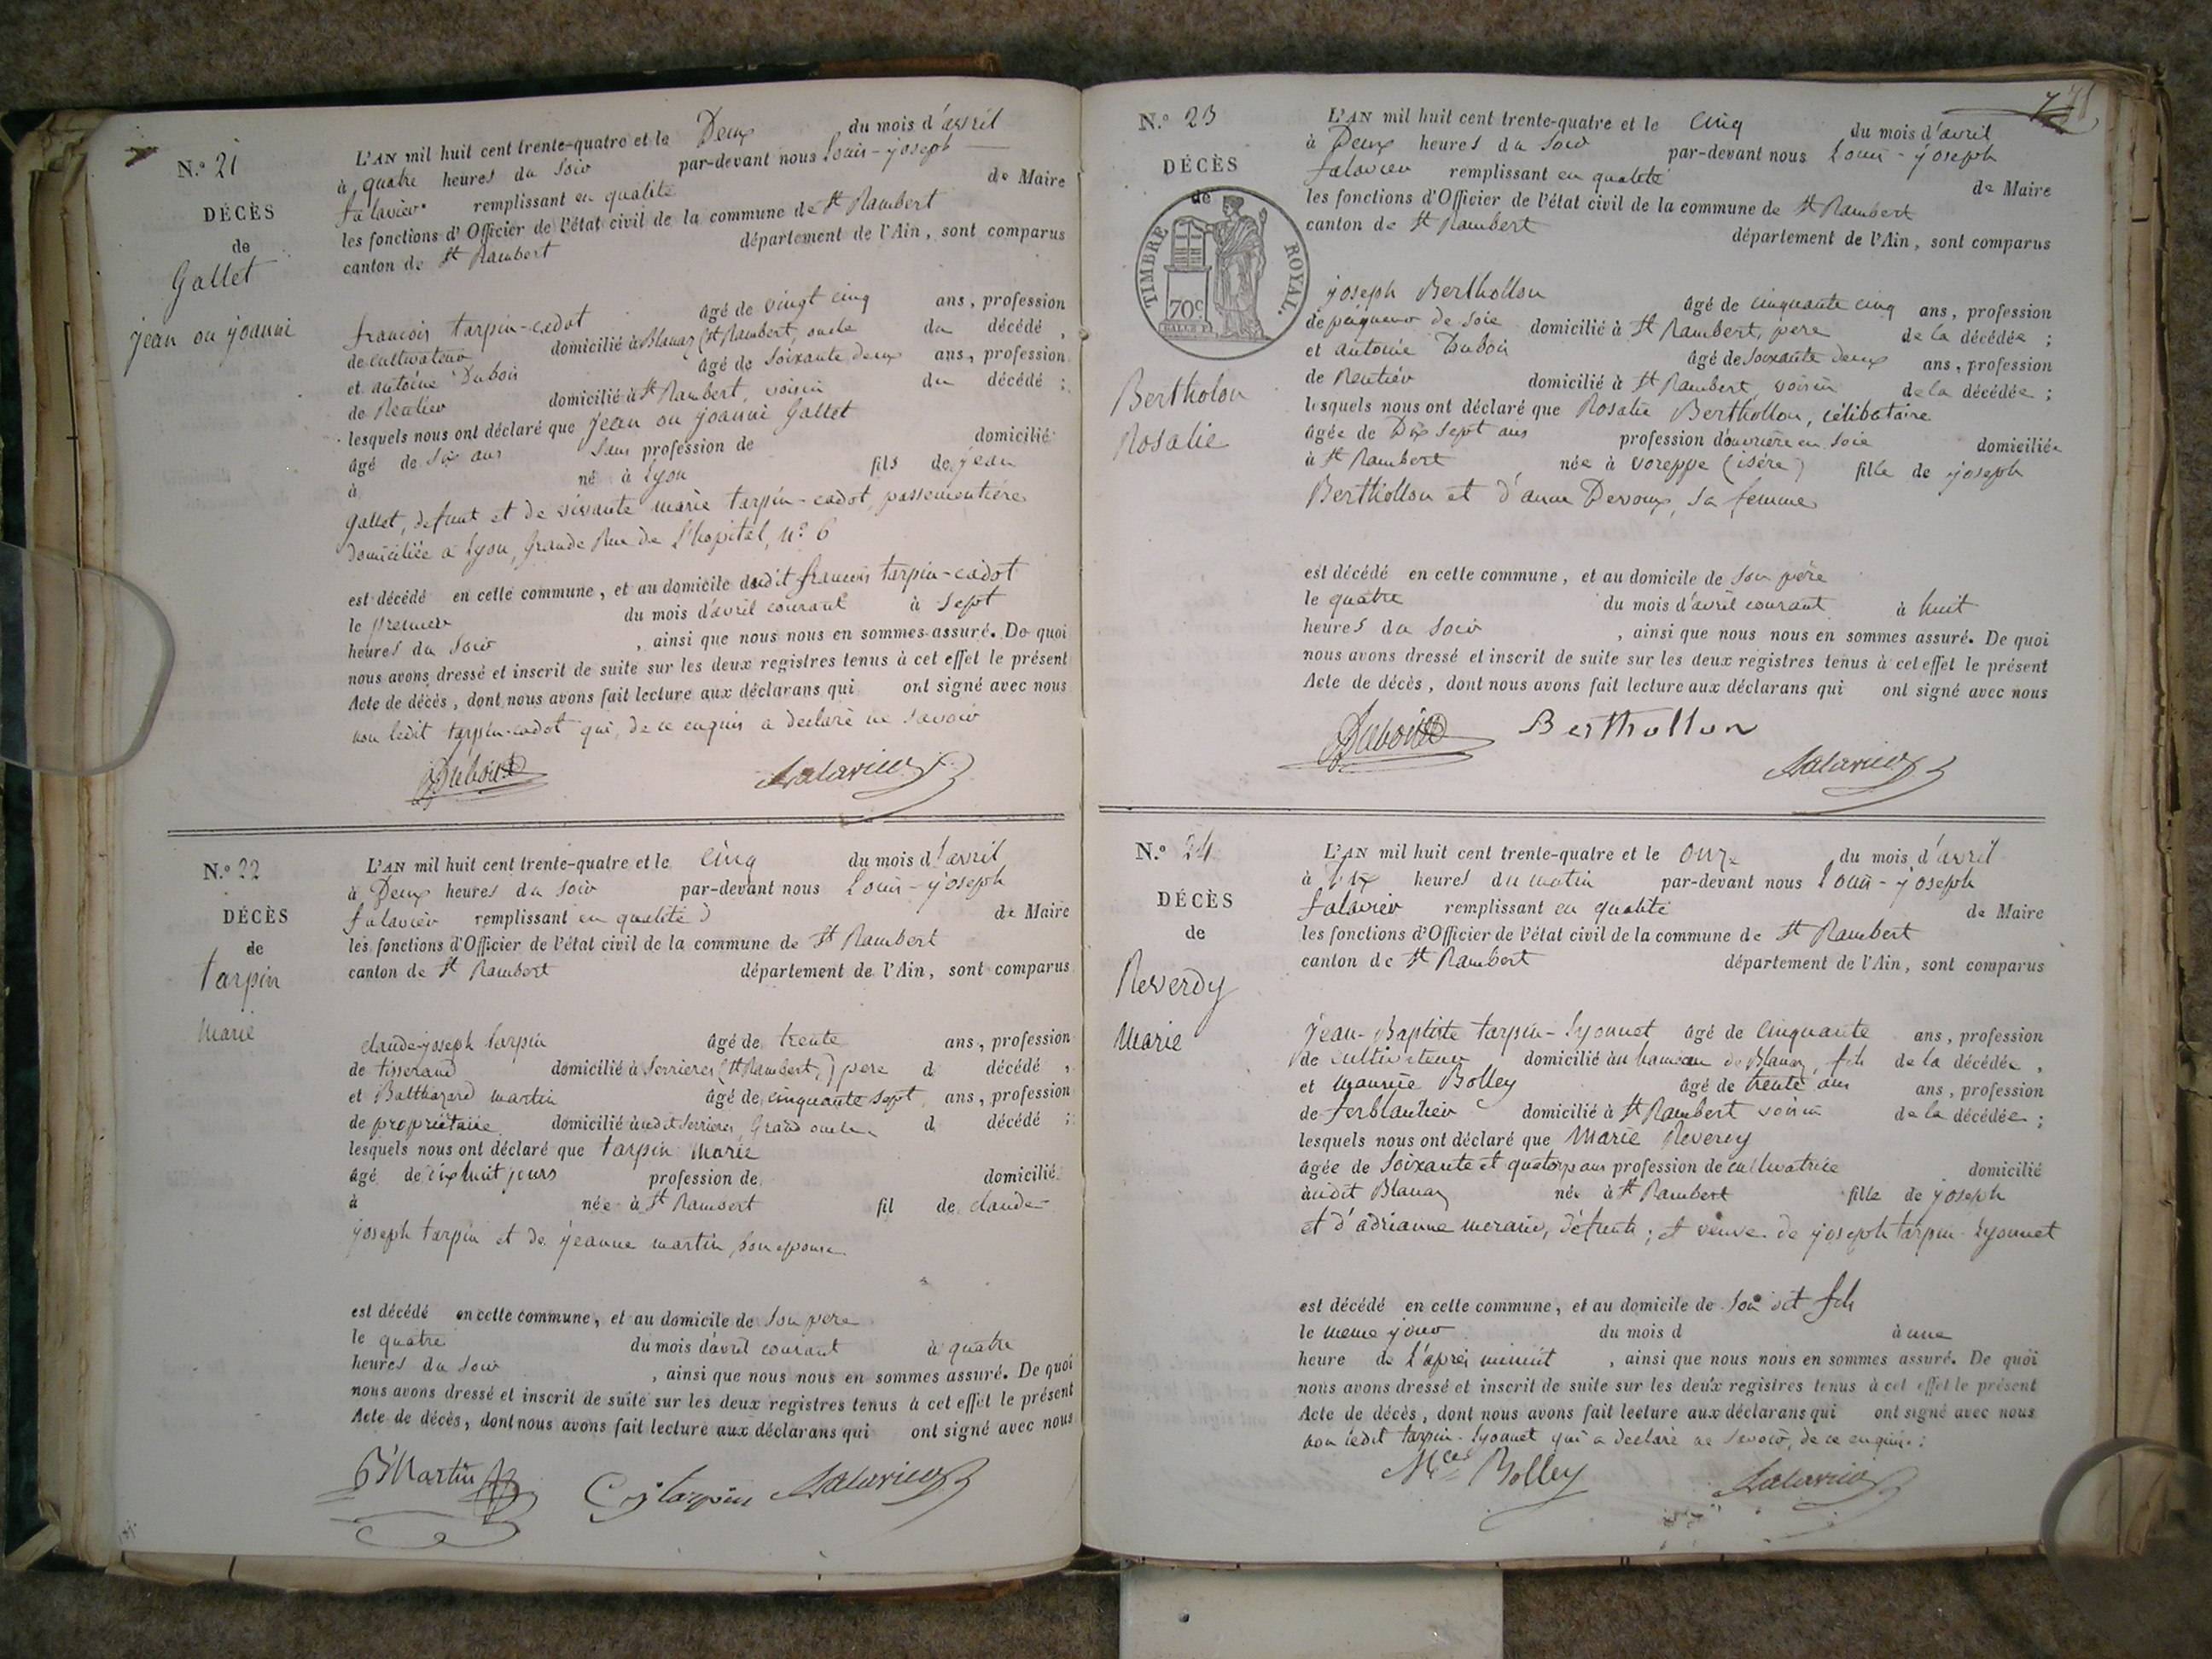 N.° 21
DÉCÈS
de
Gallet
jean ou joanni
L'AN mil huit cent trente-quatre et le Deux du mois d'avril
à quatre heures du soir par-devant nous Louis-joseph
falavier remplissant en qualité de Maire
les fonctions d'Officier de l'état civil de la commune de St Rambert
canton de St Rambert département de l'Ain, sont comparus
francois tarpin-cadot âgé de vingt cinq ans, profession
de cultivateur domicilié à Blanaz (St Rambert, oncle du décédé,
et antoine Dubois âgé de soixante deux ans, profession
de Rentier domicilié à St Rambert, voisin du décédé ;
lesquels nous ont déclaré que jean ou joanni Gallet
âgé de six ans sans profession de domicilié
à né à Lyon fils de jean
gallet, defunt et de vivante marie tarpin-cadot, passementiére
domiciliée a Lyon, Grande Rue de l'hopital, n° 6
est décédé en cette commune, et au domicile dudit francois tarpin-cadot
le premier du mois d'avril courant à sept
heures du soir, ainsi que nous nous en sommes assuré. De quoi
nous avons dressé et inscrit de suite sur les deux registres tenus à cet effet le présent
Acte de décès, dont nous avons fait lecture aux déclarans qui ont signé avec nous
non ledit tarpin-cadot qui, de ce enquis a declaré ne savoir
Dubois falavier
N.° 22
DÉCÈS
de
tarpin
Marie
L'AN mil huit cent trente-quatre et le cinq du mois d'avril
à Deux heures du soir par-devant nous Louis-joseph
falavier remplissant en qualité de Maire
les fonctions d'Officier de l'état civil de la commune de St Rambert
canton de St Rambert département de l'Ain, sont comparus
claude-joseph tarpin âgé de trente ans, profession
de tisserand domicilié à Serrieres (St Rambert,) pere d décédé,
et Balthazard martin âgé de cinquante sept ans, profession
de propriétaire domicilié audit Serrieres, Grand oncle d décédé ;
lesquels nous ont déclaré que tarpin Marie
âgé de dix huit jours profession de domicilié
à née à St Rambert fil de claude-
joseph tarpin et de jeanne martin son epouse
est décédé en cette commune, et au domicile de son pere
le quatre du mois d'avril courant à quatre
heures du soir, ainsi que nous nous en sommes assuré. De quoi
nous avons dressé et inscrit de suite sur les deux registres tenus à cet effet le présent
Acte de décès, dont nous avons fait lecture aux déclarans qui ont signé avec nous
B Martin C j tarpin falavier
N.° 23
DÉCÈS
de
TIMBRE ROYAL.
70c
Bertholon
Rosalie
L'AN mil huit cent trente-quatre et le cinq du mois d'avril
à Deux heures du soir par-devant nous Louis-joseph
falavier remplissant en qualité de Maire
les fonctions d'Officier de l'état civil de la commune de St Rambert
canton de St Rambert département de l'Ain, sont comparus
joseph Berthollon âgé de cinquante cinq ans, profession
de peigneur de soie domicilié à St Rambert, pere de la décédée ;
et antoine Dubois âgé de soixante deux ans, profession
de Rentier domicilié à St Rambert, voisin de la décédée ;
lesquels nous ont déclaré que Rosalie Berthollon, célibataire
âgée de Dix sept ans profession d'ouvriere en soie domiciliée
à St Rambert née à voreppe (isére) fille de joseph
Berthollon et d'anne Devoux, sa femme
est décédé en cette commune, et au domicile de son père
le quatre du mois d'avril courant à huit
heures du soir, ainsi que nous nous en sommes assuré. De quoi
nous avons dressé et inscrit de suite sur les deux registres tenus à cet effet le présent
Acte de décès, dont nous avons fait lecture aux déclarans qui ont signé avec nous
Dubois Berthollon
falavier
N.° 24
DÉCÈS
de
Reverdy
Marie
L'AN mil huit cent trente-quatre et le onze du mois d'avril
à Dix heures du matin par-devant nous Louis-joseph
falavier remplissant en qualité de Maire
les fonctions d'Officier de l'état civil de la commune de St Rambert
canton de St Rambert département de l'Ain, sont comparus
jean-Baptiste tarpin-Lyonnet âgé de cinquante ans, profession
de cultivateur domicilié au hameau de Blanaz, fils de la décédée,
et Maurice Bolley âgé de trente ans ans, profession
de ferblantier domicilié à St Rambert voisin de la décédée ;
lesquels nous ont déclaré que Marie Reverdy
âgée de soixante et quatorze ans profession de cultivatrice domicilié
audit Blanaz née à St Rambert fille de joseph
et d'adrianne , défunts ; et veuve de joseph tarpin-Lyonnet
est décédé en cette commune, et au domicile de son dit fils
le meme jour du mois d à une
heure de l'aprés minuit, ainsi que nous nous en sommes assuré. De quoi
nous avons dressé et inscrit de suite sur les deux registres tenus à cet effet le présent
Acte de décès, dont nous avons fait lecture aux déclarans qui ont signé avec nous
non ledit tarpin-Lyonnet qui a declaré ne savoir, de ce enquis :
Mce Bolley falavier